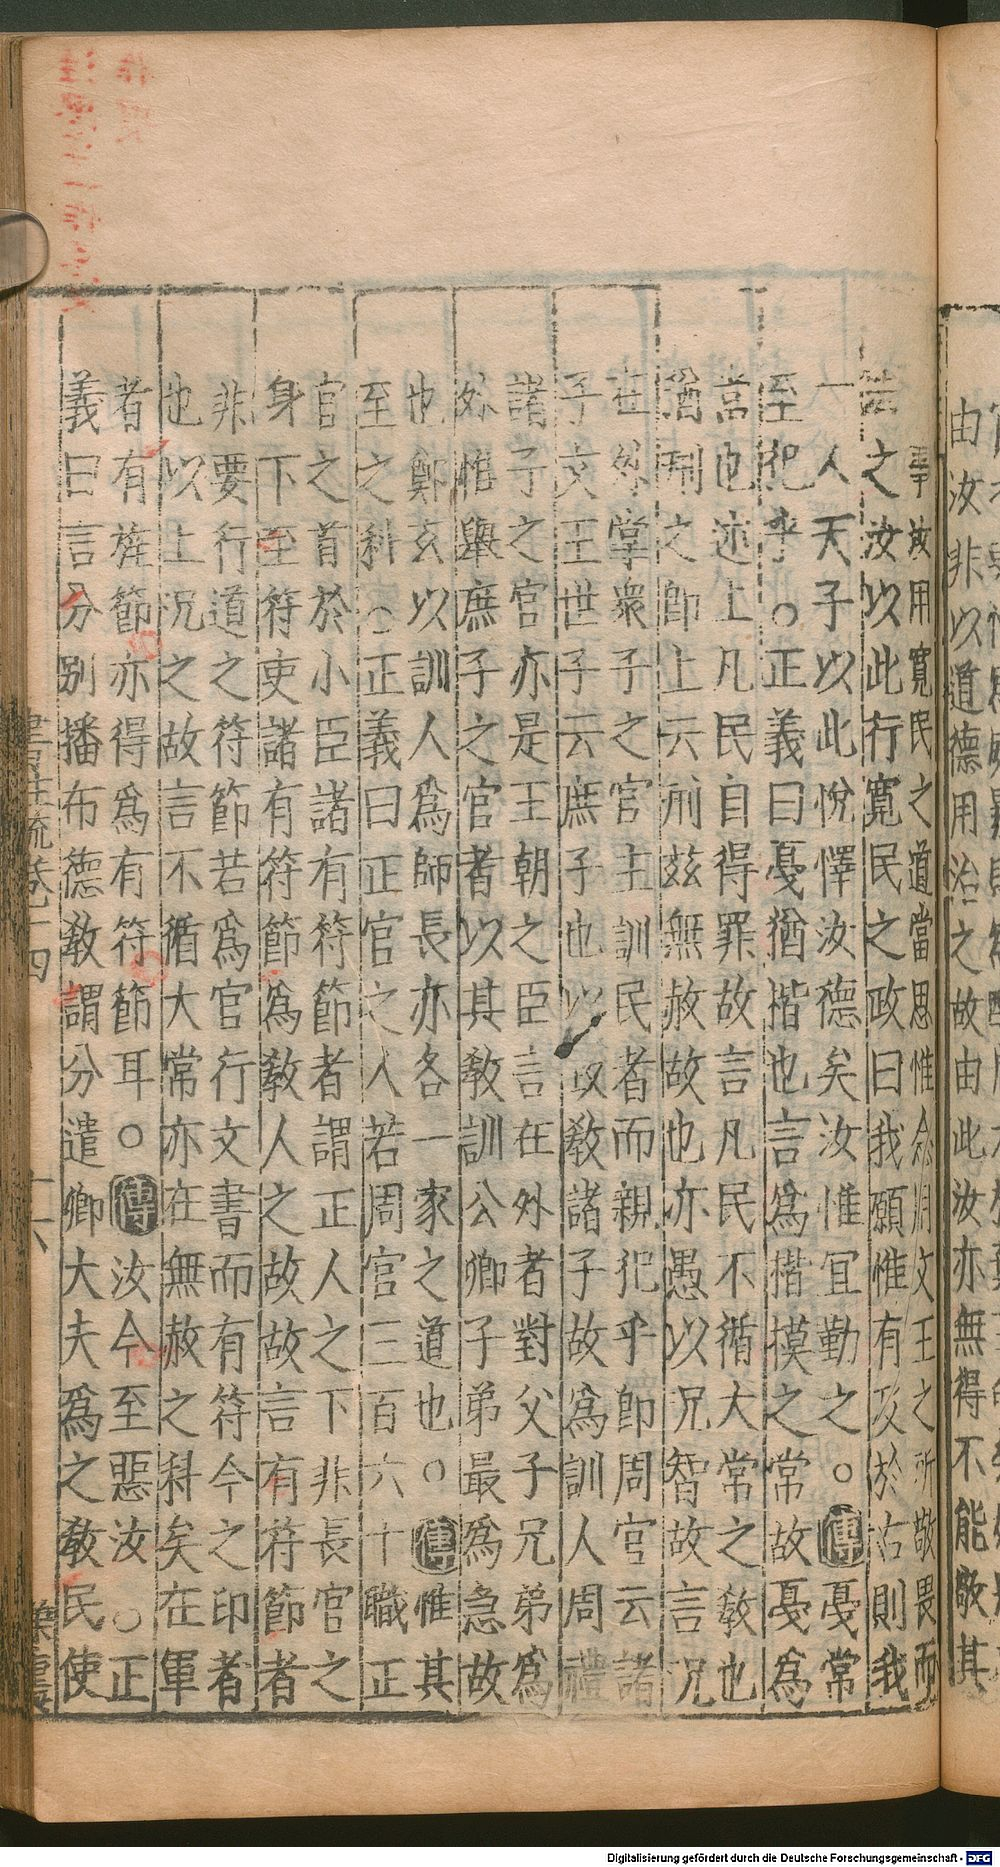 由汝非以道德用治之故由此汝亦無得不能敬其
事汝用寬民之道當思惟念用文王之所敬畏而
法之汝以此行寬民之政曰我願惟有及於古則我
一人天子以此悅懌汝德矣汝惟宜勤之○傳戞常
至犯乎○正義曰戞猶楷也言爲楷模之常故戞爲
常也述上凡民自得罪故言凡民不循大常之敎也
猶刑之即上云刑茲無赦故也亦愚以況智故言況
在外掌衆子之官主訓民者而親犯乎即周官云諸
子文王世子云庶子也以敎諸子故爲訓人周禮
諸子之官亦是王朝之臣言在外者對父子兄弟爲
外惟舉庶子之官者以其敎訓公卿子弟最爲急故
也鄭玄以訓人爲師長亦各一家之道也○傳惟其
至之科○正義曰正官之人若周官三百六十職正
官之首於小臣諸有符節者謂正人之下非長官之
身下至符吏諸有符節爲敎人之故故言有符節者
非要行道之符節若爲官行文書而有符今之印者
也以上況之故言不循大常亦在無赦之科矣在軍
者有旌節亦得爲有符節耳○傳汝今至惡汝○正
義曰言分別播布德敎謂分遣卿大夫爲之敎民使
書注疏卷十四
十六
Digitalisierung gefördert durch die Deutsche Forschungsgemeinschaft - DFG